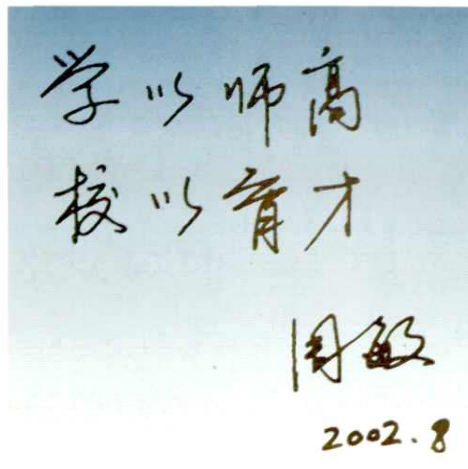 学以师高
校以育才
周敏
2002.8